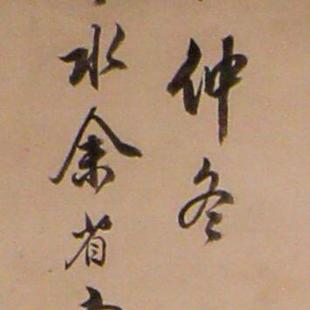 仲冬
水余省